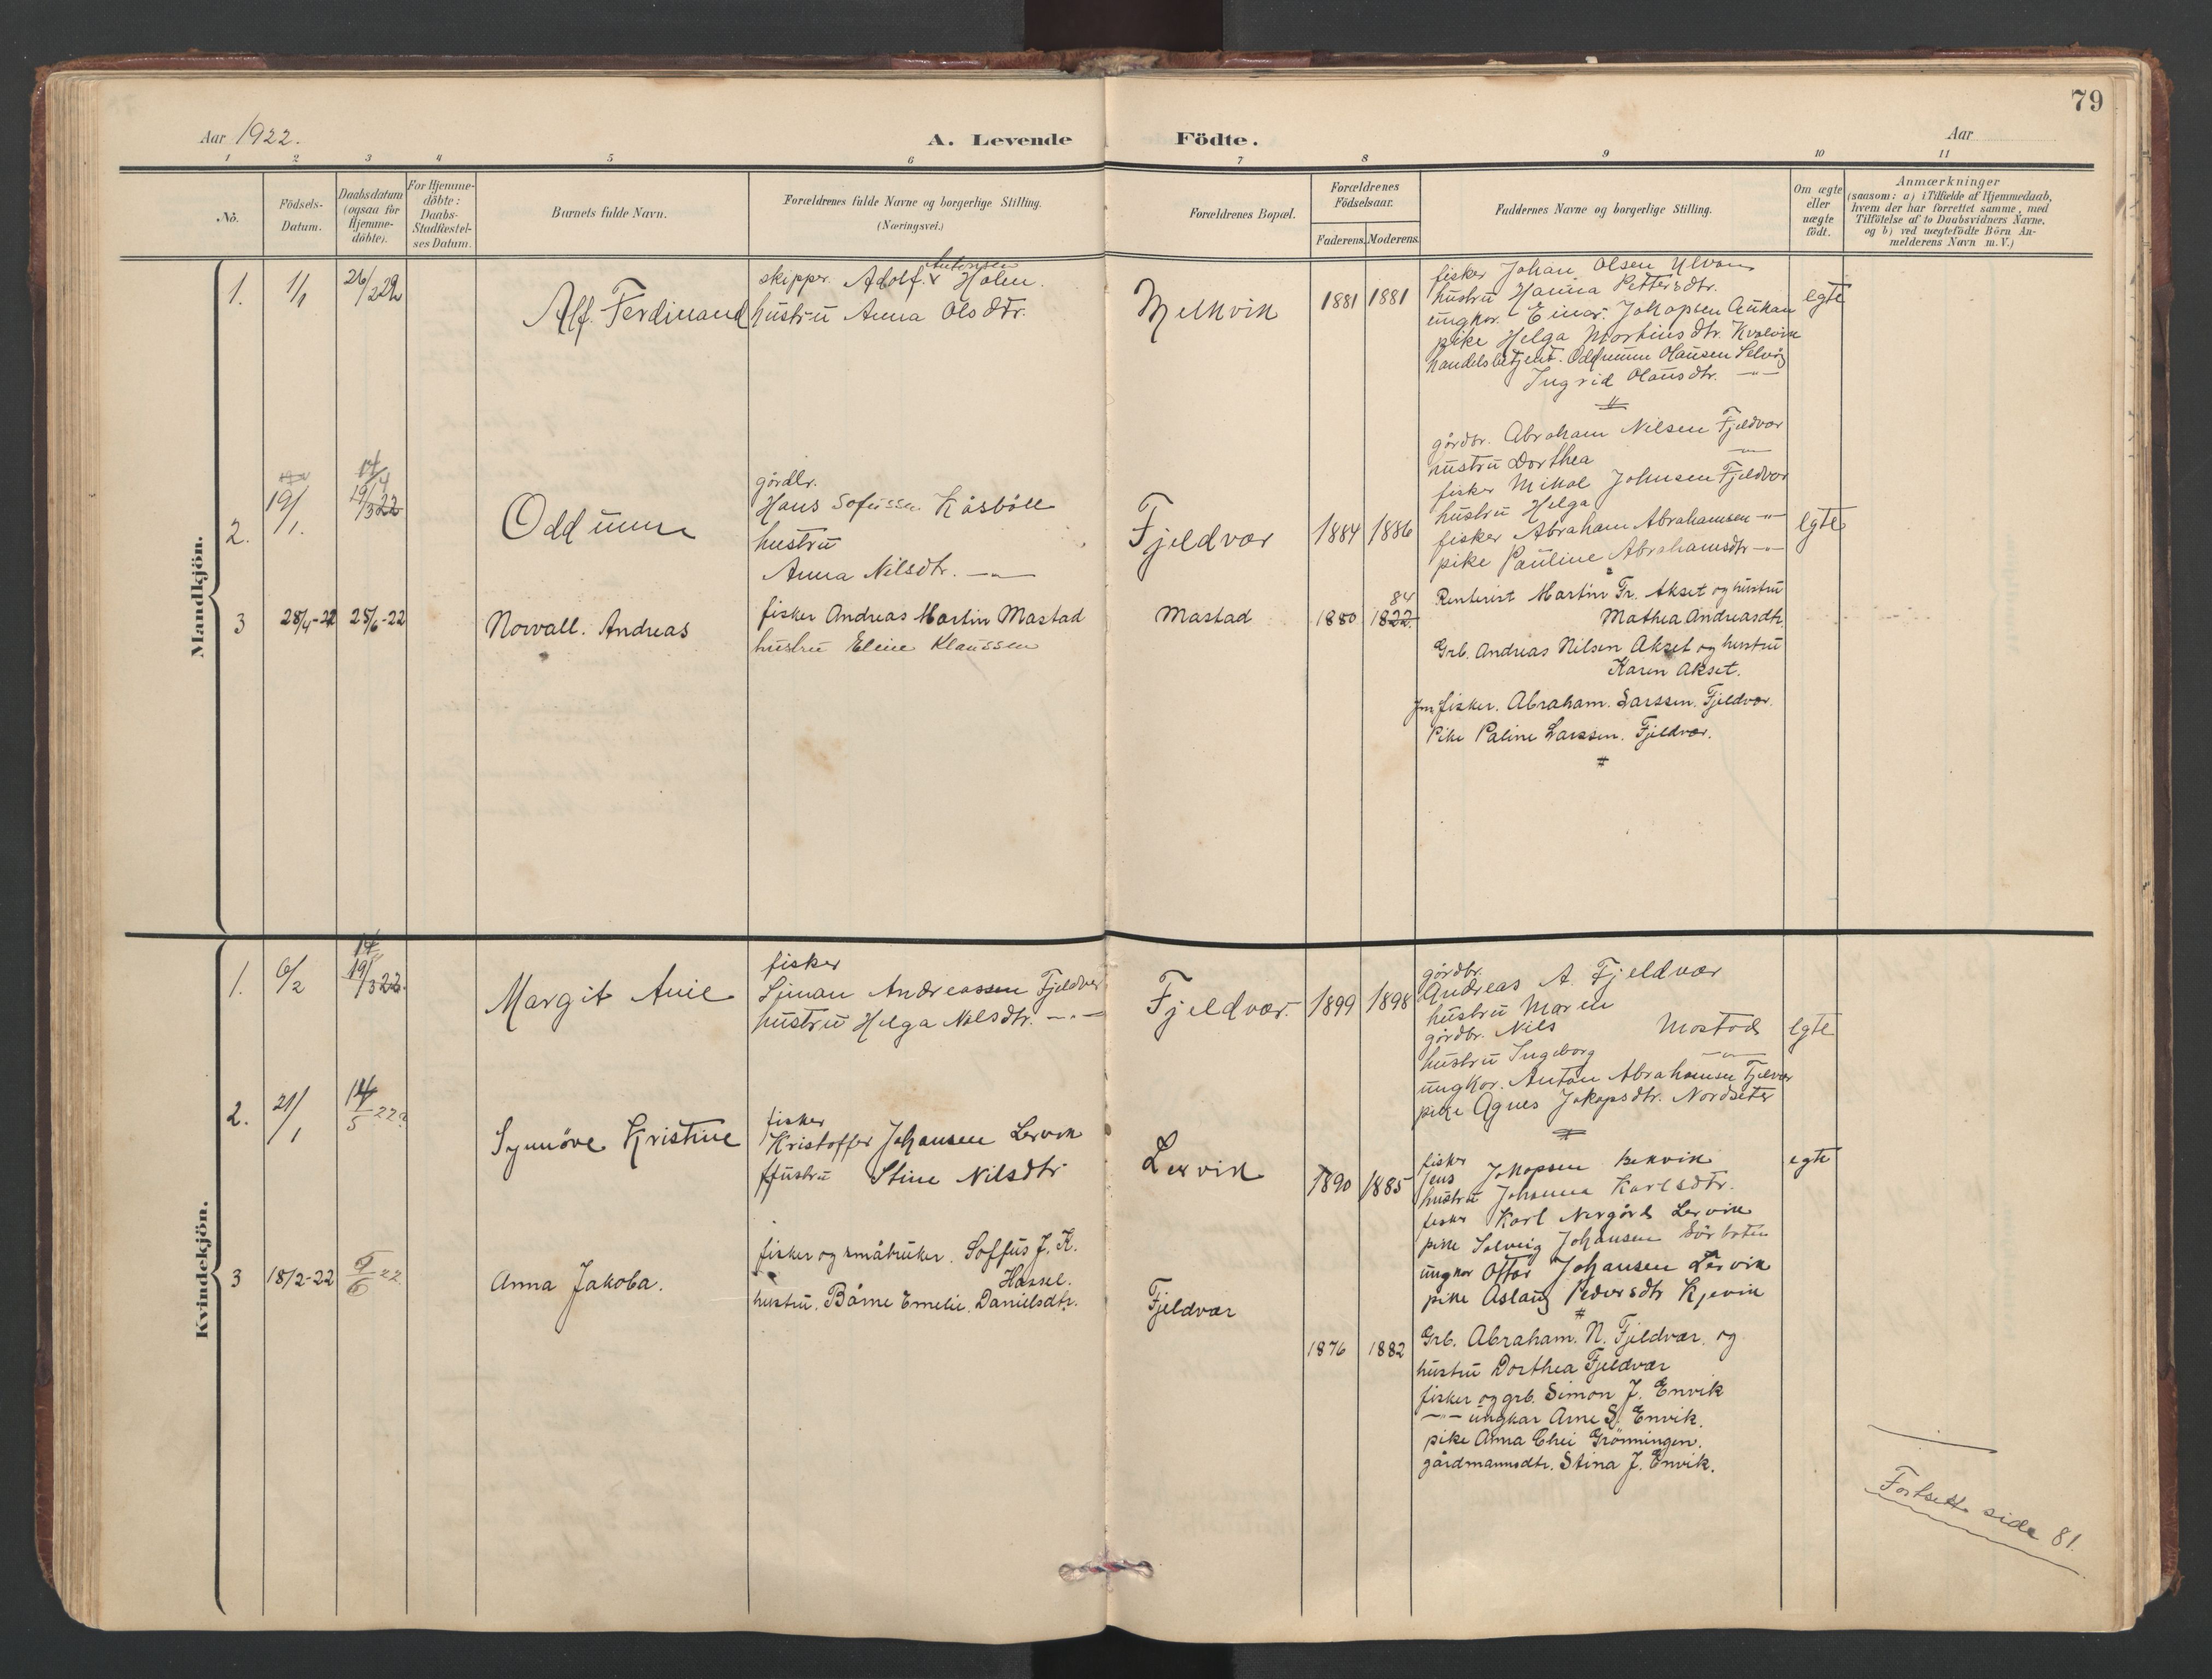 79
Aar 1922.
A. Levende Födte.
Aar
1 2 3 4 5 6 7 8 9 10 11
No.
Födsels-
Datum.
Daabsdatum
(ogsaa for
Hjemme-
döbte).
For Hjemme-
döbte:
Daabs-
Stadfæstel-
ses Datum.
Barnets fulde Navn.
Forældrenes fulde Navne og borgerlige Stilling.
(Næringsvei.)
Forældrenes Bopæl.
Forældrenes
Födselsaar.
Faderens. Moderens.
Faddernes Navne og borgerlige Stilling.
Om ægte
eller
uægte
födt.
Anmærkninger
(saasom: a) i Tilfælde af Hjemmedaab,
hvem der har forrettet samme, med
Tilföielse af to Daabsvidners Navne,
og b) ved uægtefödte Börn An-
melderens Navn m. V.)
Mandkjön.
1. 1/1 26/2 22
Alf. Ferdinand
Antonsen
skipper. Adolf. Holm.
hustru Anna Olsdtr.
Melkvik
1881 1881
fisker Johan Olsen
hustru Hanna Pettersdtr.
ungkar. Einar. Jakopsen Aukan
pike Helga Martinsdtr. Kvalvik
handelsbetjent. Oddmun Olausen
Ingrid Olausdtr. -"-
egte
2. 19/1. 19/3 22
14/4
Oddmun
gårdbr.
Hans Sofussen Kåsböll
hustru
Anna Nilsdtr. -"-
Fjeldvær
1884 1886
gårdbr. Abraham Nilsen Fjeldvær
hustru Dorthea -"-
fisker Mikal Johnsen Fjeldvær
hustru Helga
fisker Abraham Abrahamsen -"-
pike Pauline Abrahamsdtr -"-
egte
3 28/4-22 25/6-22
Norvall. Andreas
fisker Andreas Martin Mastad
hustru Eline Klaussen
Mastad
84
1880 1822.
Rentenist Martin Tr. Akset og hustru
Mathea Andreasdtr.
Grb. Andreas Nilsen Akset og hustru
Karen Akset.
fisker. Abraham. Larssen. Fjeldvær.
Pike Paline Larssen. Fjeldvær.
Kvindekjön.
1. 6/2 19/3 22.
14
Margit Anie
fisker
Simon Andreassen Fjeldvær
hustru Helga Nilsdtr. -"-
Fjeldvær.
1899 1898
gårdbr.
Andreas A. Fjeldvær
hustru Maren
gårdbr. Nils Mostad
hustru Ingeborg -"-
ungkar. Anton Abrahamsen Fjelvær
pike Agnes Jakopsdtr. Nordseter
egte
2. 21/1 14/5 22
Synnöve Kristine
fisker
Kristoffer Johansen Lervik
Hustru Stine Nilsdtr
Lervik
1890 1885
fisker
Jens Jakopsen Bekvik
hustru Johanna Karlsdtr.
fisker Karl Nergård Lervik
pike Solveig Johansen Sörboten
ungkar Ottar Johansen Lervik
pike Aslaug Pedersdtr Kjevik
egte
3 18/2-22 5/6 22
Anna Jakoba.
fisker og småbruker. Soffus J. K.
Hassel.
hustru. Bårne Emelie. Danielsdtr.
Fjeldvær
1876 1882
Grb. Abraham. N. Fjeldvær. og
hustru Dorthea Fjeldvær
fisker og grb. Simon J. Envik
-"- ungkar Arne S. Envik.
pike Anna Grönningen.
gårdmannsdtr. Stina J. Envik.
Fortsett side 81.